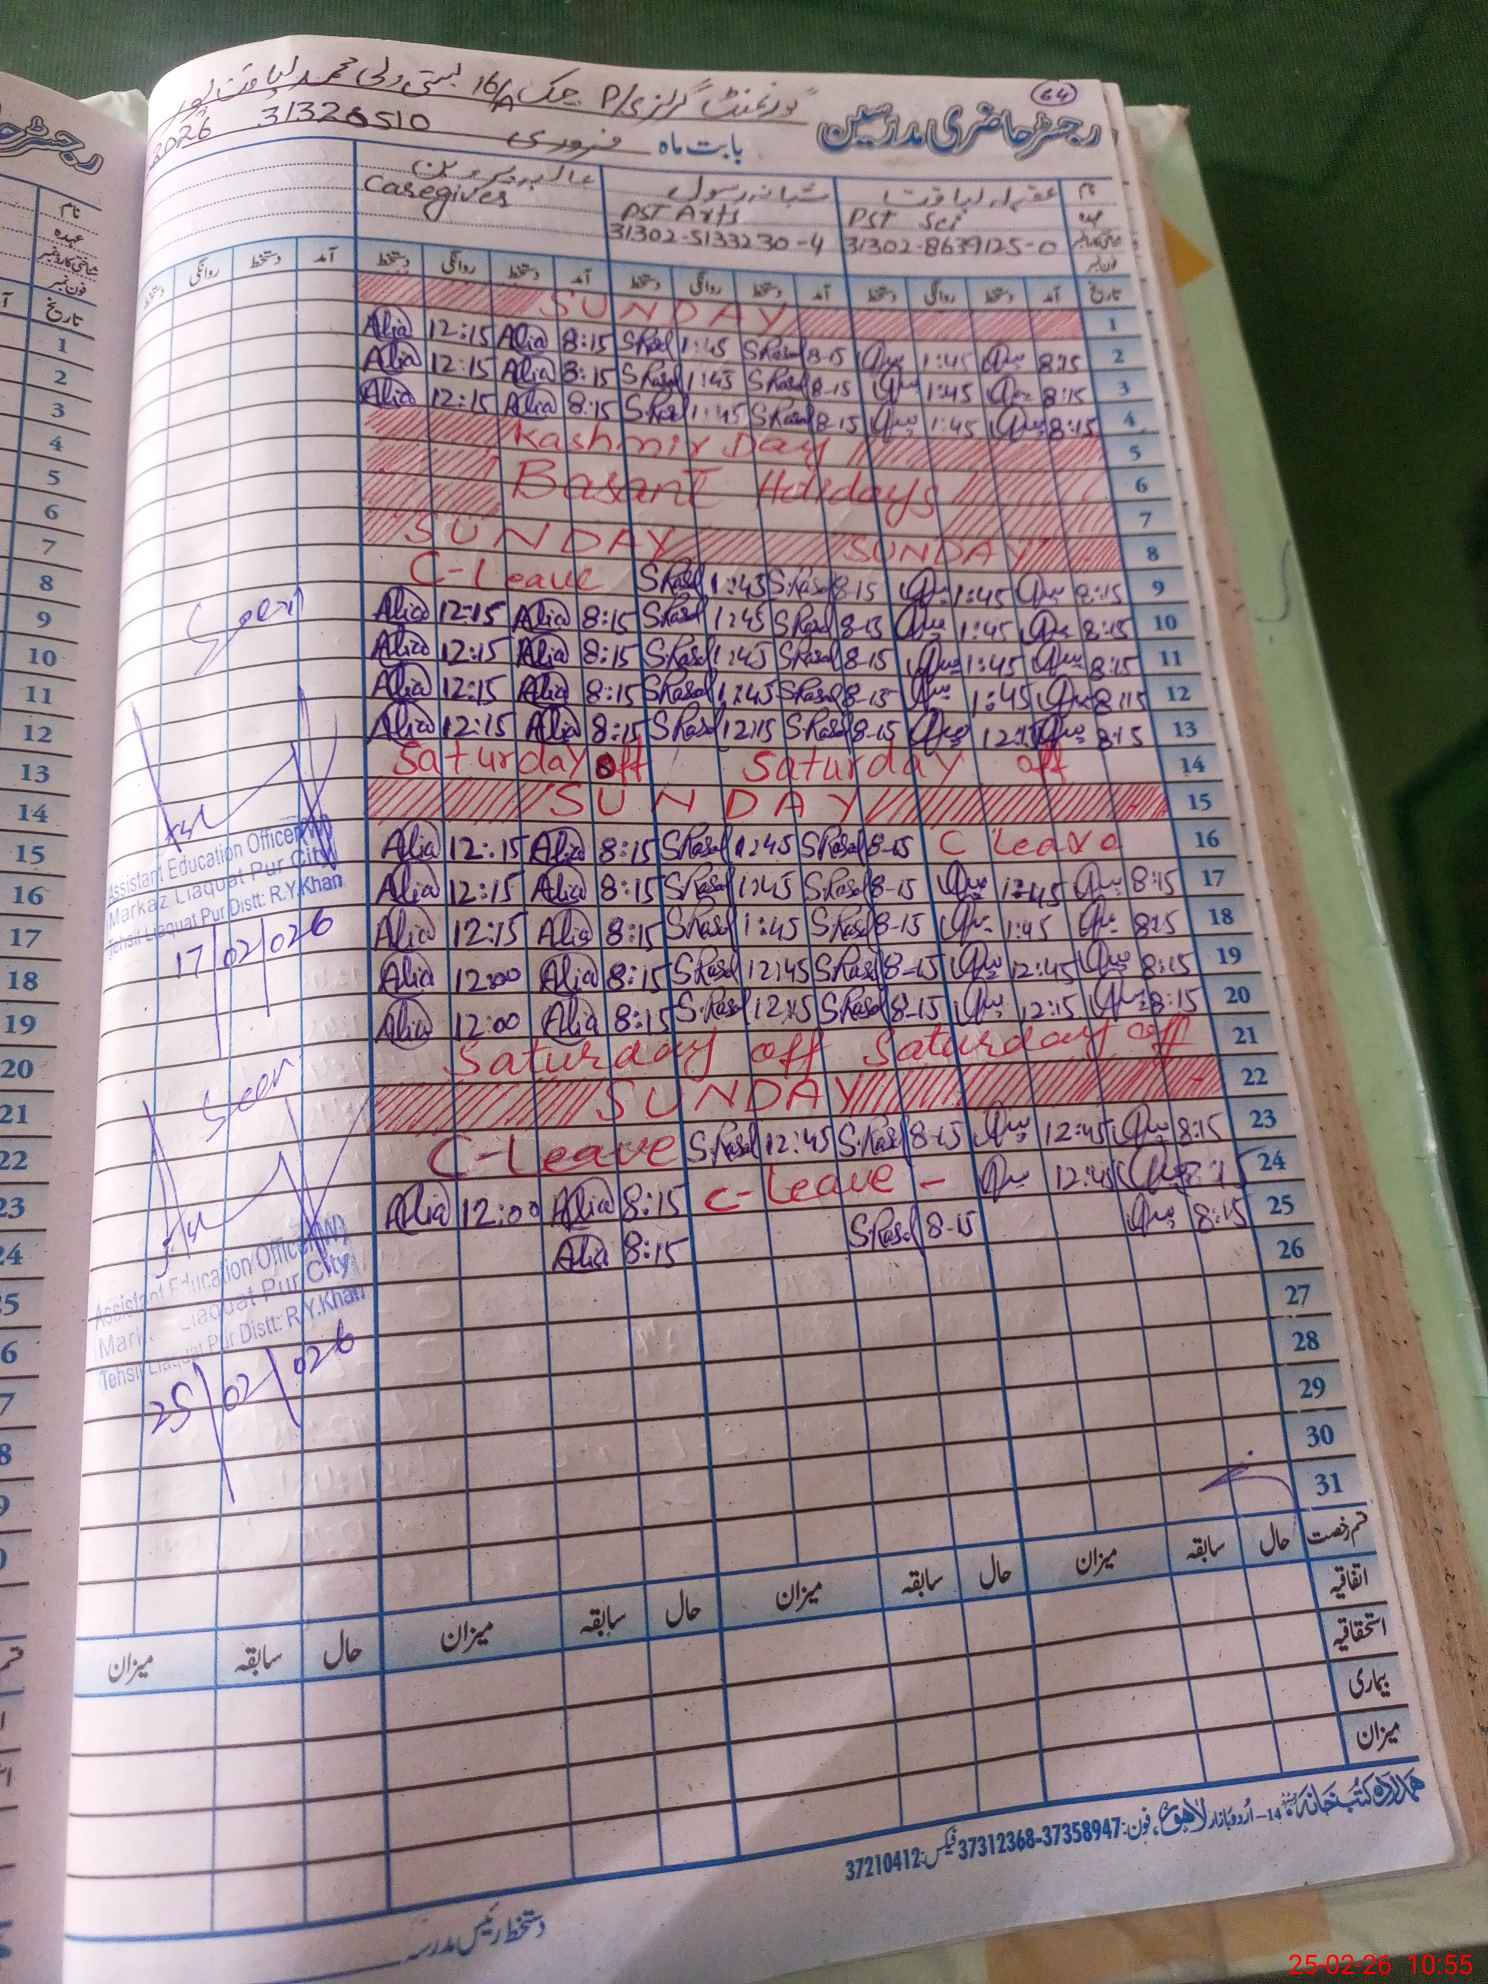 64
گورنمنٹ گرلز P/ی چک 16/A بستی ولی محمد لیاقت پور
رجسٹر حاضری مدرسین
بابت ماہ فروری 2026 31326510
نام شبانہ رسول عالیہ پروین
عہدہ PST Sci PST Arts Caregiver
31302-8639125-0 31302-5133230-4
فون نمبر
تاریخ آمد دستخط روانگی دستخط آمد دستخط روانگی دستخط آمد دستخط روانگی دستخط آمد دستخط روانگی دستخط
SUNDAY 1
Alia 12:15 Alia 8:15 S.Rasol 1:45 S.Rasol 8-15 1:45 8:15 2
Alia 12:15 Alia 8:15 S.Rasol 1:45 S.Rasol 8-15 1:45 8:15 3
Alia 12:15 Alia 8:15 S.Rasol 1:45 S.Rasol 8-15 1:45 8:15 4
Kashmir Day 5
Basant Holidays 6
7
SUNDAY SUNDAY 8
C-Leave S.Rasol 1:45 S.Rasol 8-15 1:45 8:15 9
Alia 12:15 Alia 8:15 S.Rasol 1:45 S.Rasol 8-15 1:45 8:15 10
Alia 12:15 Alia 8:15 S.Rasol 1:45 S.Rasol 8-15 1:45 8:15 11
Alia 12:15 Alia 8:15 S.Rasol 1:45 S.Rasol 8-15 1:45 8:15 12
Alia 12:15 Alia 8:15 S.Rasol 12:15 S.Rasol 8-15 8:15 13
Saturday off Saturday off 14
SUNDAY 15
Alia 12:15 Alia 8:15 S.Rasol 1:45 S.Rasol 8-15 C Leave 16
Alia 12:15 Alia 8:15 S.Rasol 1:45 S.Rasol 8-15 1:45 8:15 17
Alia 12:15 Alia 8:15 S.Rasol 1:45 S.Rasol 8-15 1:45 8:15 18
Alia 12:00 Alia 8:15 S.Rasol 12:45 S.Rasol 8-15 12:45 8:15 19
Alia 12:00 Alia 8:15 S.Rasol S.Rasol 8-15 12:15 8:15 20
Saturday off Saturday off 21
SUNDAY 22
C-Leave S.Rasol 12:45 S.Rasol 8-15 12:45 8:15 23
Alia 12:00 Alia 8:15 C-Leave - 12:45 8:15 24
Alia 8:15 S.Rasol 8-15 8:15 25
26
27
28
29
30
31
Seen
Assistant Education Officer (W)
Markaz Liaquat Pur City
Tehsil Liaquat Pur Distt: R.Y.Khan
17/02/026
Seen
Assistant Education Officer (W)
Markaz Liaquat Pur City
Tehsil Liaquat Pur Distt: R.Y.Khan
25/02/026
قسم رخصت حال سابقہ میزان حال سابقہ میزان حال سابقہ میزان حال سابقہ میزان
اتفاقیہ
استحقاقیہ
بیماری
میزان
ہمالہ کتب خانہ 14-اُردو بازار لاہور، فون: 37358947-37312368 فیکس: 37210412
دستخط رئیس مدرسہ
رجسٹر حا
نام
عہدہ
شناختی کارڈ نمبر
فون نمبر
تاریخ
1
2
3
4
5
6
7
8
9
10
11
12
13
14
15
16
17
18
19
20
21
22
23
24
25-02-26 10:55